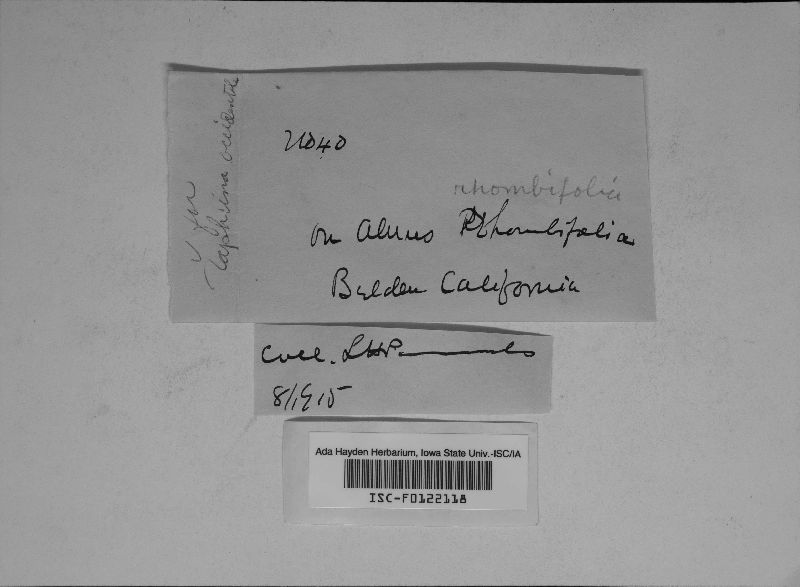 v for
Taphrina occidentale
21040
rhombifolia
on Alnus Rhombifolia
Belden California
Coll. LHP
8/1915
Ada Hayden Herbarium, Iowa State Univ.-ISC/IA
ISC-F0122118